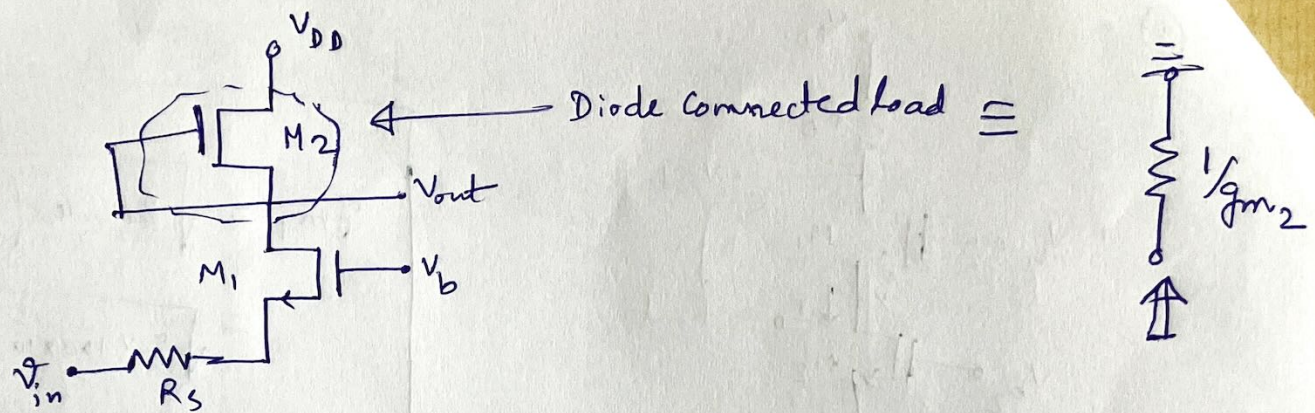 V_DD
M2
Diode Connected load ≡
Vout
1/gm2
M1
Vb
vin
Rs